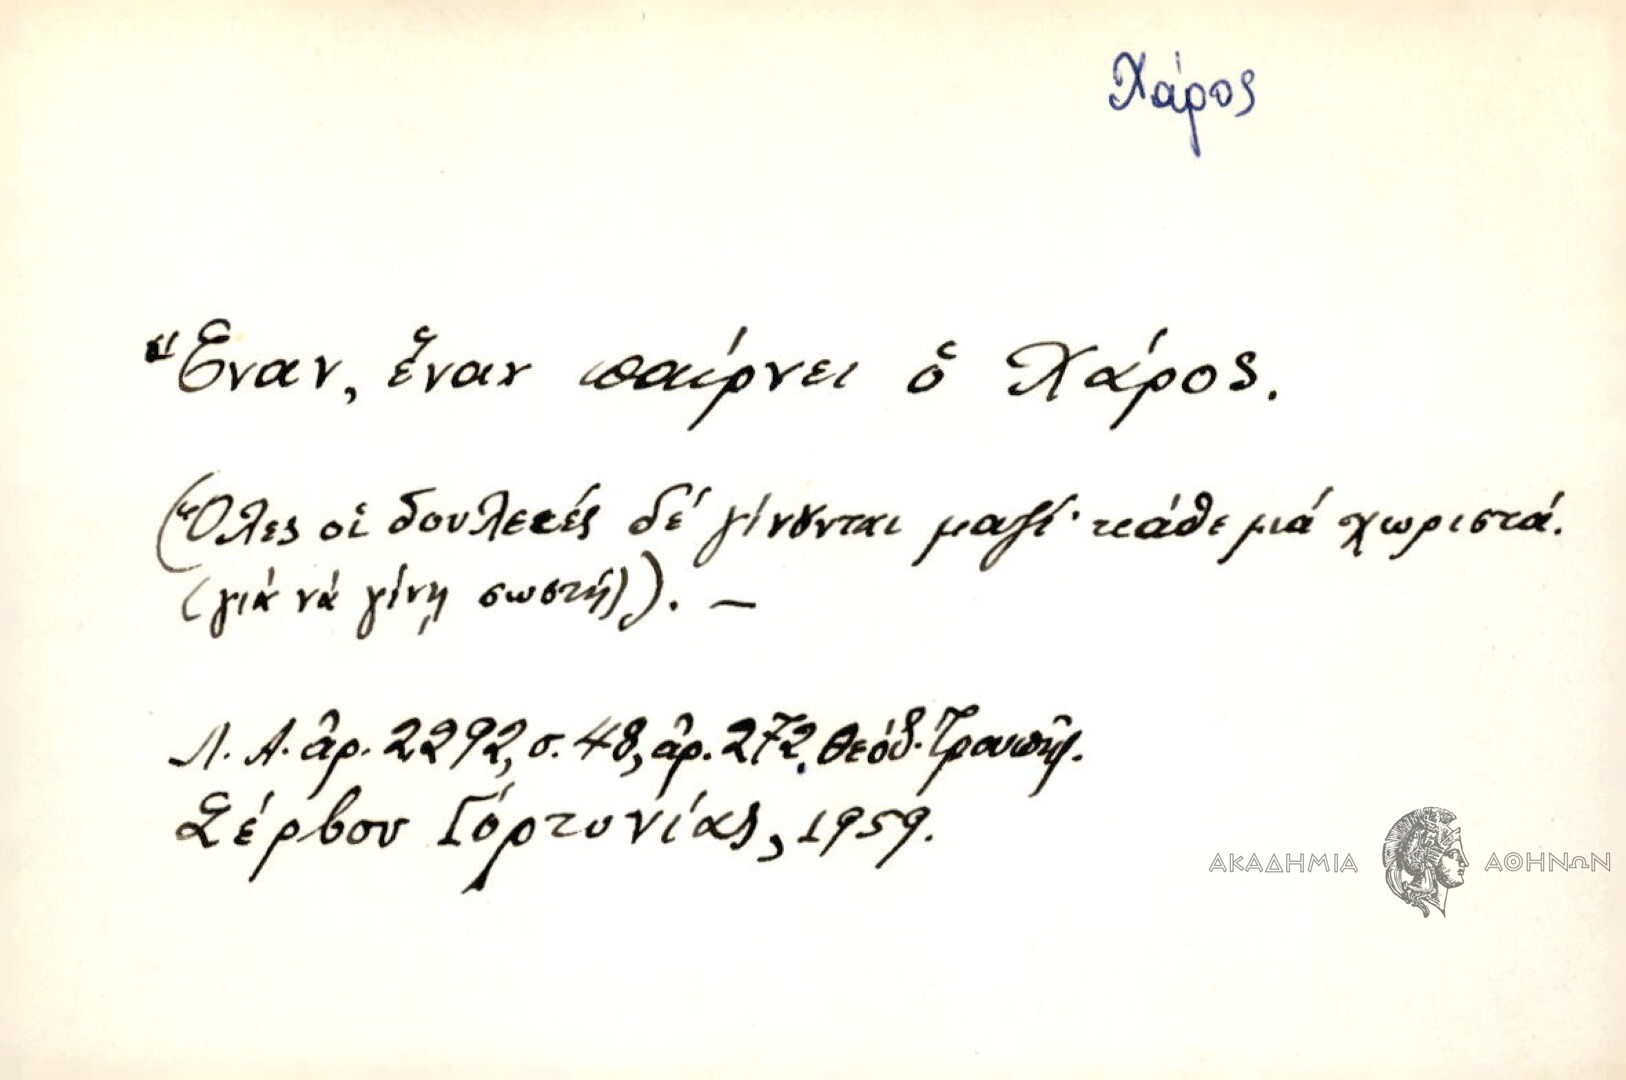 Χάρος
Ἕναν, ἕναν παίρνει ὁ Χάρος.
(Ὅλες οἱ δουλειές δέ γίνονται μαζί· κάθε μιά χωριστά.
(γιά νά γίνῃ σωστή)). —
Λ. Α. ἀρ. 2292, σ. 48, ἀρ. 272, Θεόδ. Τρουπῆς.
Σέρβου Γόρτυνίας, 1959.
ΑΚΑΔΗΜΙΑ ΑΘΗΝΩΝ